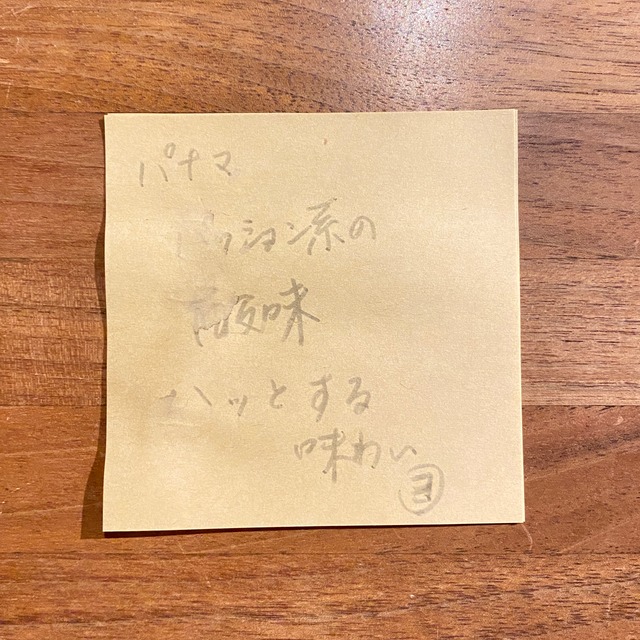 パナマ
ッション系の
酸味
ハッとする
味わい
ヨ